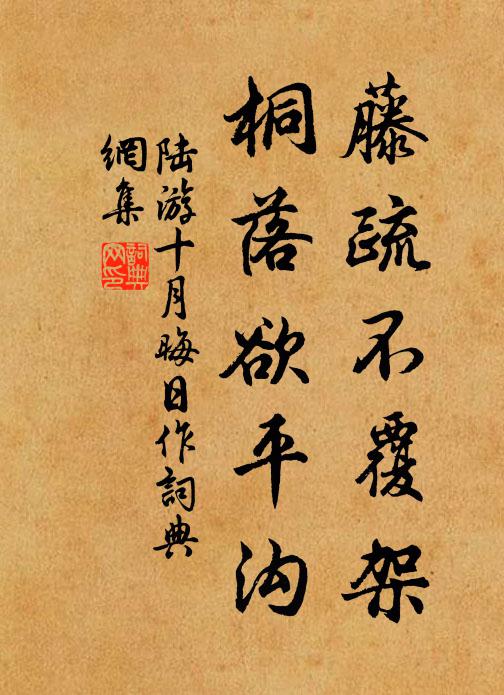 藤疏不覆架
桐落欲平沟
陆游十月晦日作詞典
網集
詞典
网印